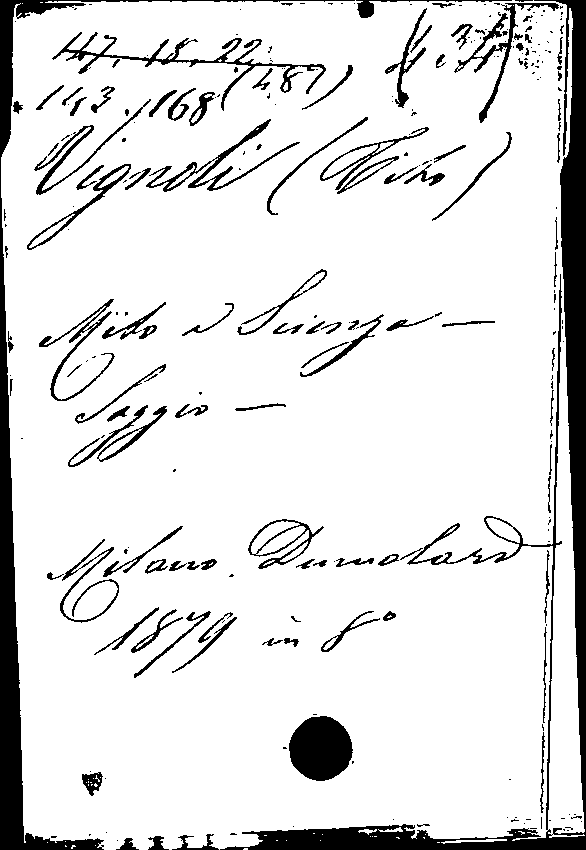 47. 18. 22.
143. 168 (487)
Vignoli (Tito)
Mito e Scienza —
Saggio —
Milano. Dumolard
1879 in 8º